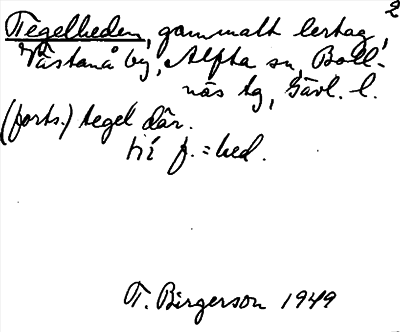 2
Tegelheden, gammalt lertag,
Västanå by, Alfta sn, Boll-
näs tg, Gävl. l.
(forts.) tegel där.
hé f. = hed.
T. Birgerson 1949